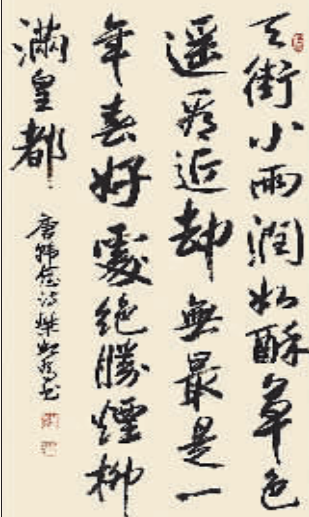 天街小雨潤如酥草色
遥看近却無最是一
年春好處絕勝煙柳
滿皇都
唐韓愈詩